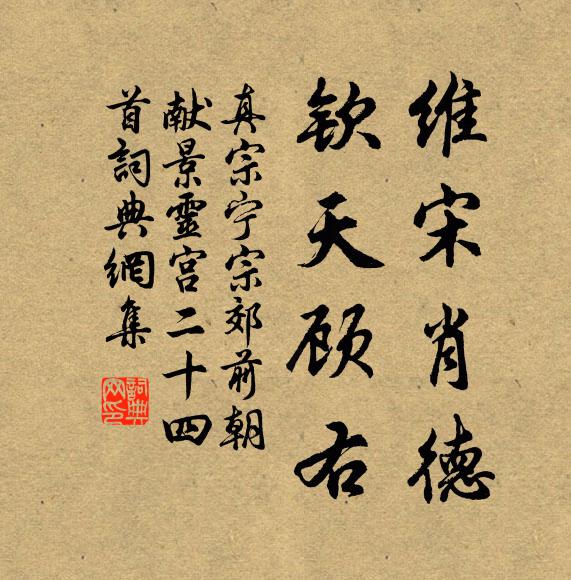 维宋肖德
钦天顾右
真宗宁宗郊前朝
献景靈宫二十四
首詞典網集
詞典
网印